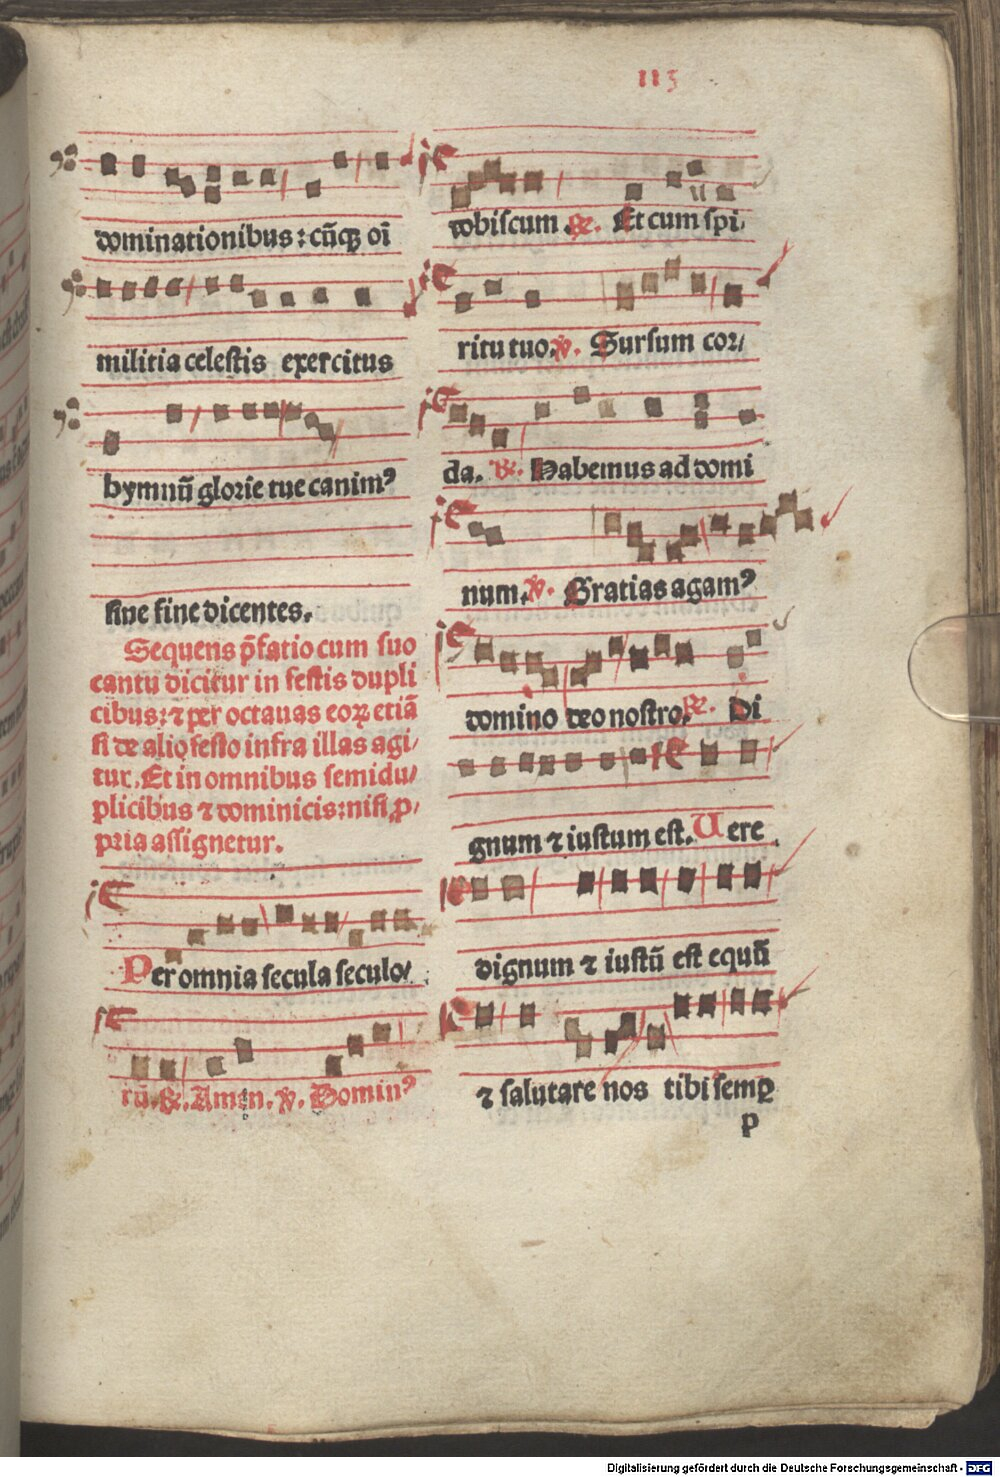 113
dominationibus: cūqꝫ oī
militia celestis exercitus
hymnū glorie tue canimꝰ
sine fine dicentes.
Sequens p̄fatio cum suo
cantu dicitur in festis dupli
cibus: ⁊ per octauas eoꝝ etiā
si de alio festo infra illas agi/
tur. Et in omnibus semidu/
plicibus ⁊ dominicis: nisi ꝓ/
pria assignetur.
Per omnia secula seculo/
rū. ℟. Amen. ℣. Dominꝰ
vobiscum. ℟. Et cum spi/
ritu tuo. ℣. Sursum cor/
da. ℟. Habemus ad domi
num. ℣. Gratias agamꝰ
domino deo nostro. ℟. Di
gnum ⁊ iustum est. Uere
dignum ⁊ iustū est equū
⁊ salutare nos tibi semꝑ
p
Digitalisierung gefördert durch die Deutsche Forschungsgemeinschaft - DFG